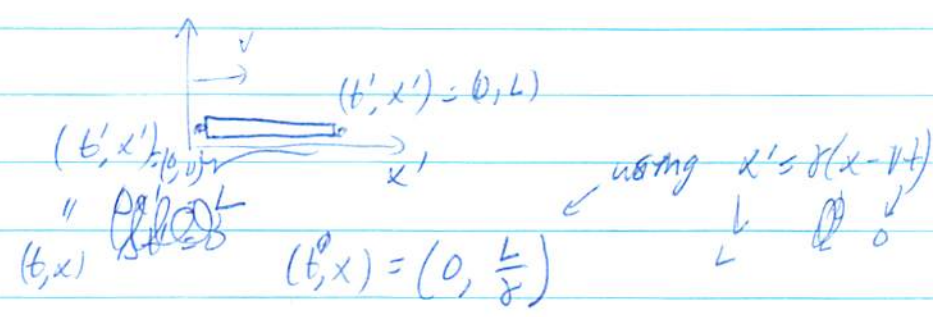 v
(t', x') = (0, L)
(t', x') = (0, 0)
x'
using x' = γ(x - vt)
"
L
L 0
(t, x)
(t, x) = (0, L/γ)